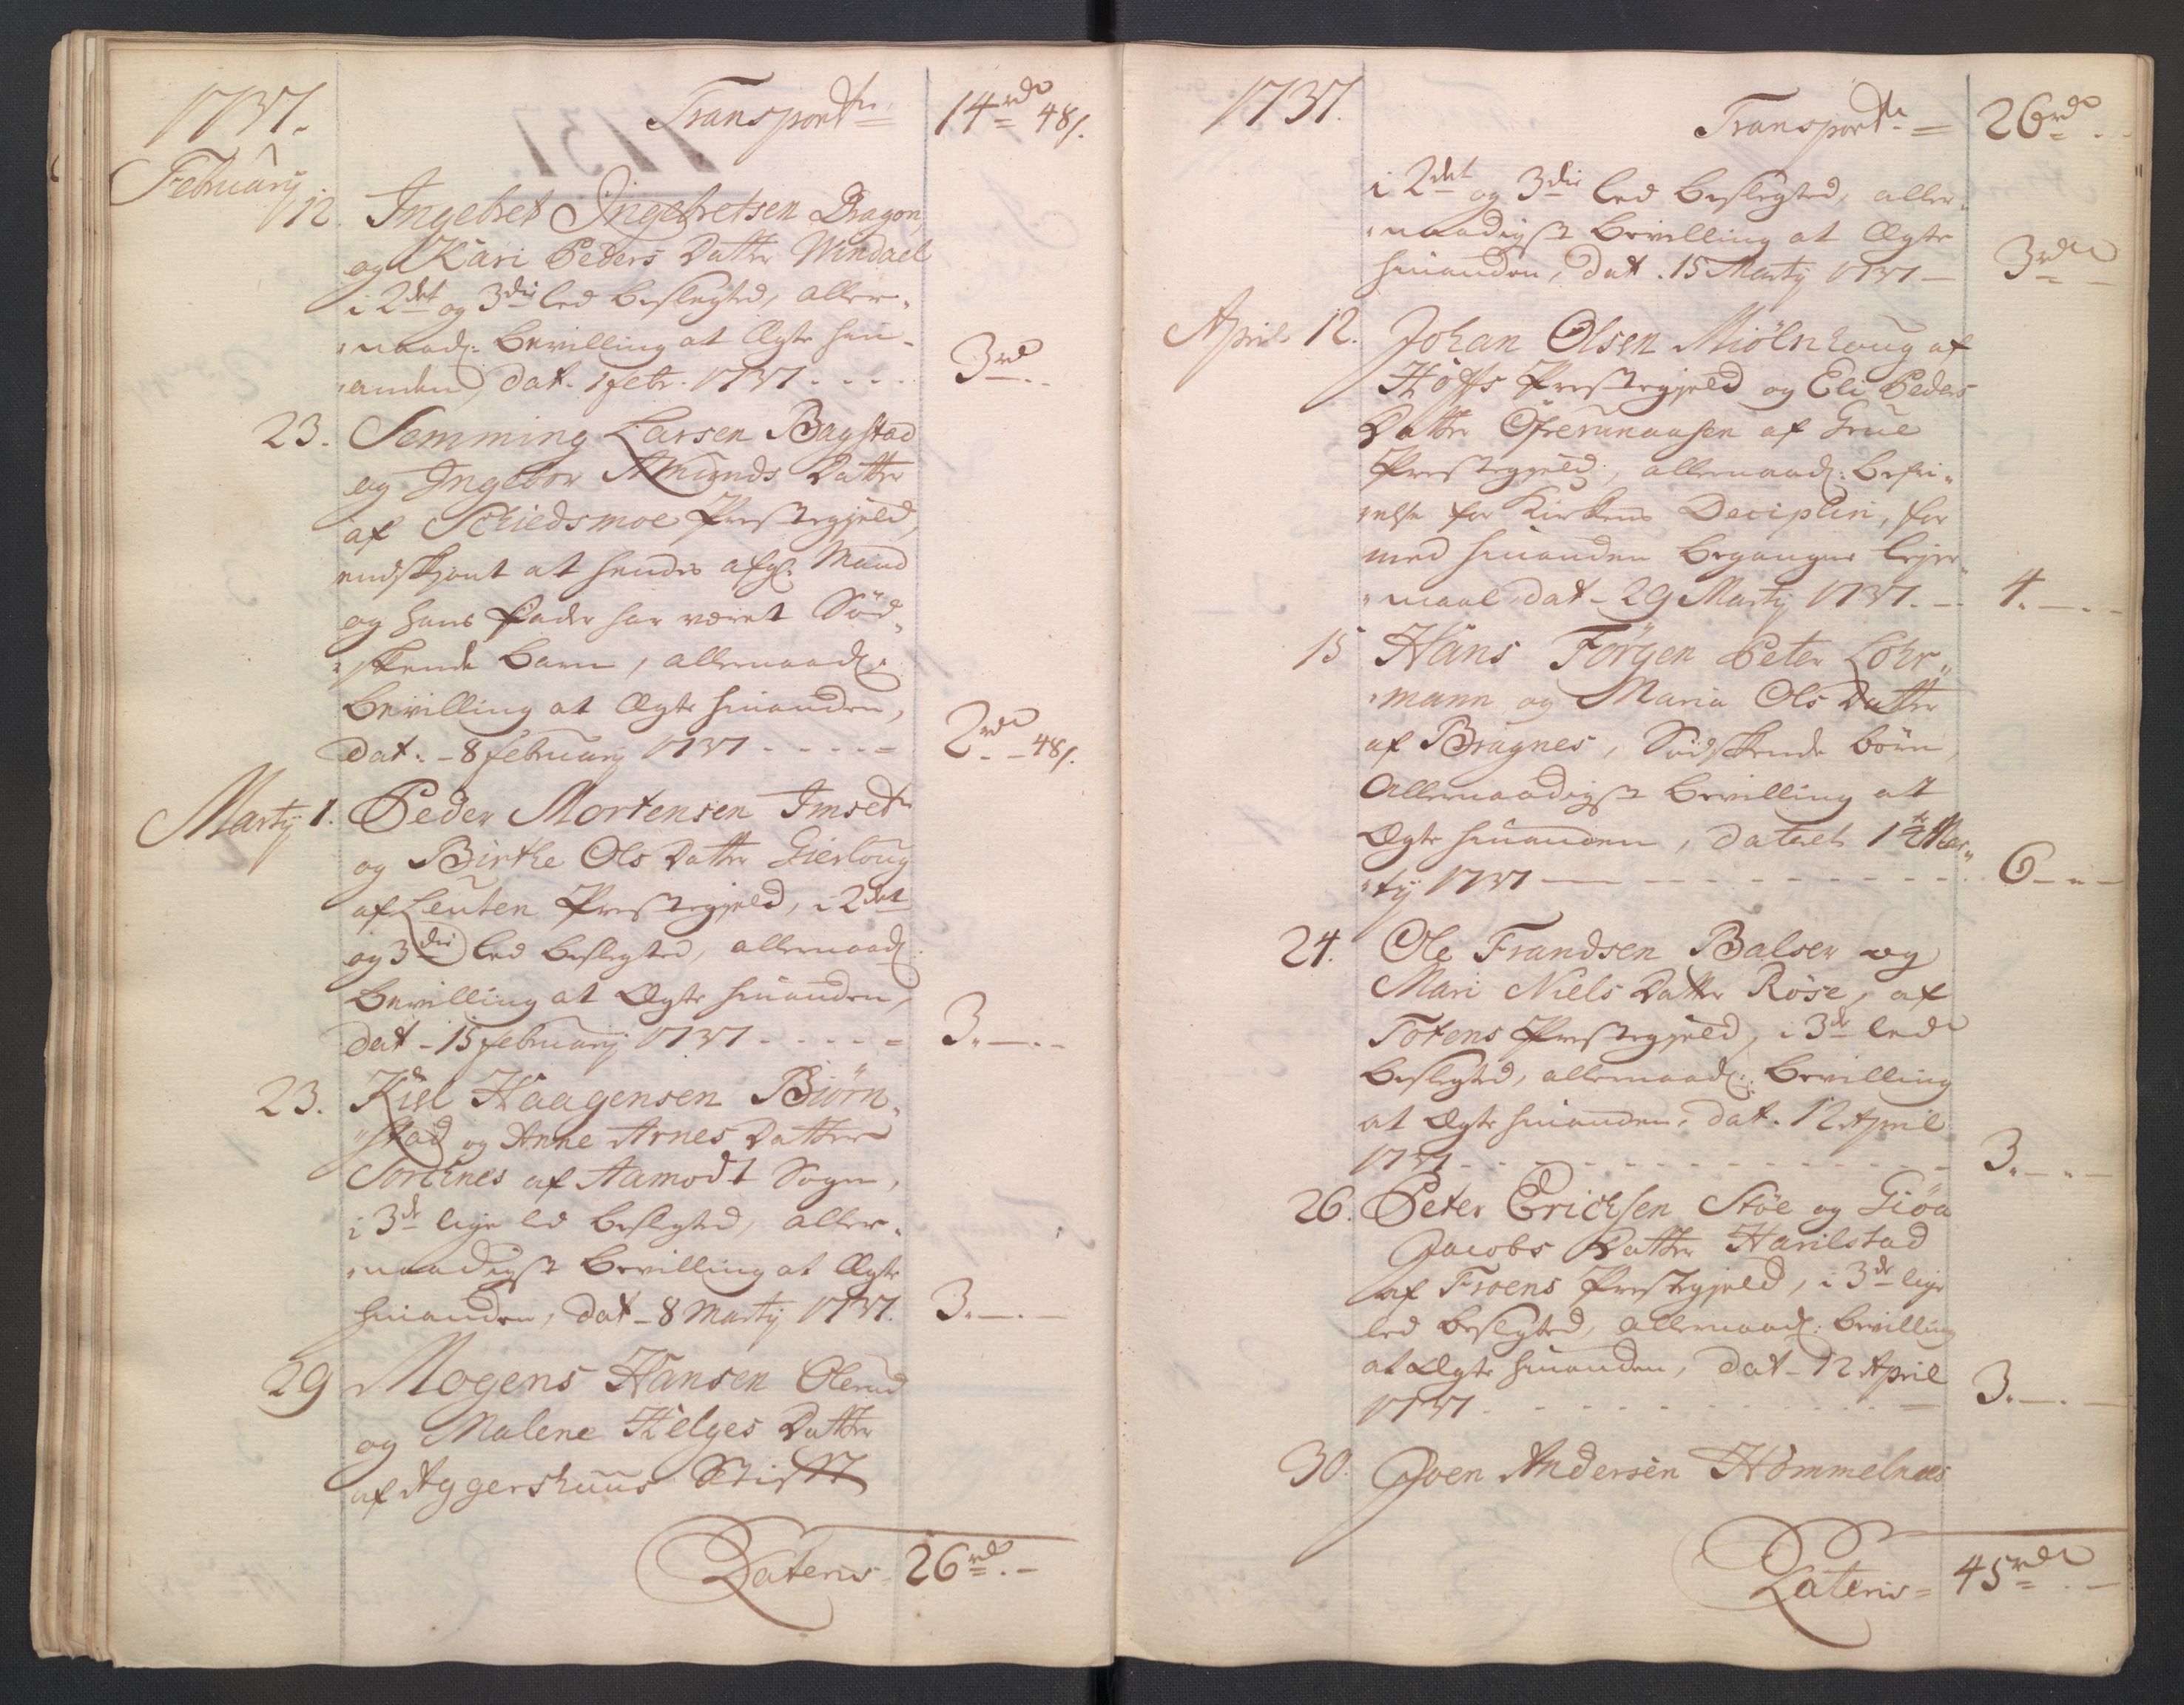 1737.
Transport 14 rd 48 s.
February
12. Ingebret Ingebretsen Dragon,
og Kari Peders Datter Windael
i 2det og 3die led beslegted, aller-
naad: bevilling at Ægte hin-
anden, dat. 1 febr. 1737 - - - - 3 rd
23. Semming Larsen Bagstad
og Ingebor Amunds Datter
af Schiedsmoe Prestegield,
endskiønt at hendes afg: Mand
og hans Fader har været Sød-
skende barn, allernaad:
bevilling at Ægte hinanden,
dat. - 8 february 1737 - - - - 2 rd 48 s.
Martij 1. Peder Mortensen Imset
og Birthe Ols Datter Gierloug
af Leuten Prestegield, i 2det
og 3die led beslegted, allernaad:
bevilling at Ægte hinanden,
dat - 15 february 1737 - - - - 3. - . -
23. Kiel Haagensen Biørn-
stad og Anne Arnes Datter
Sorknes af Aamodt Sogn,
i 3de lige led beslegted, aller-
naadigst bevilling at Ægte
hinanden, dat - 8 Martij 1737. 3. - . -
29 Mogens Hansen Olerud
og Malene Helges Datter
af Aggershuus Stifft
Lateris 26 rd . -
1737.
Transport = 26 rd
i 2det og 3die led beslegted, aller-
naadigst bevilling at Ægte
hinanden, dat. 15 Martij 1737 - 3 rd
April 12. Johan Olsen Miølnhoug af
Hoffs Prestegield og Eli Peders
Datter Ofrerunaasen af Grue
Prestegield, allernaad: befri-
else for Kirkens Deciplin, for
med hinanden begangne lejer-
maal dat - 29 Martij 1737. - 4. - . -
15 Hans Jørgen Peter Lohr-
mann og Maria Ols Datter
af Bragnes, Sødskende børn,
Allernaadigst bevilling at
Ægte hinanden, dateret 1te Mar-
tij 1737 - - - - 6 - - -
24. Ole Frandsen Balser og
Mari Niels Datter Røse, af
Totens Prestegield, i 3de led
beslegted, allernaad: bevilling
at Ægte hinanden, dat. 12 April
1737 - - - - 3. - . -
26. Peter Erichsen Støe og Giøa
Jacobs Datter Harilstad
af Froens Prestegield, i 3de lige
led beslegted, allernaad: bevilling
at Ægte hinanden, dat - 12 April
1737 - - - - 3. - . -
30. Joen Andersen Hommelnæs
Lateris = 45 rd . -